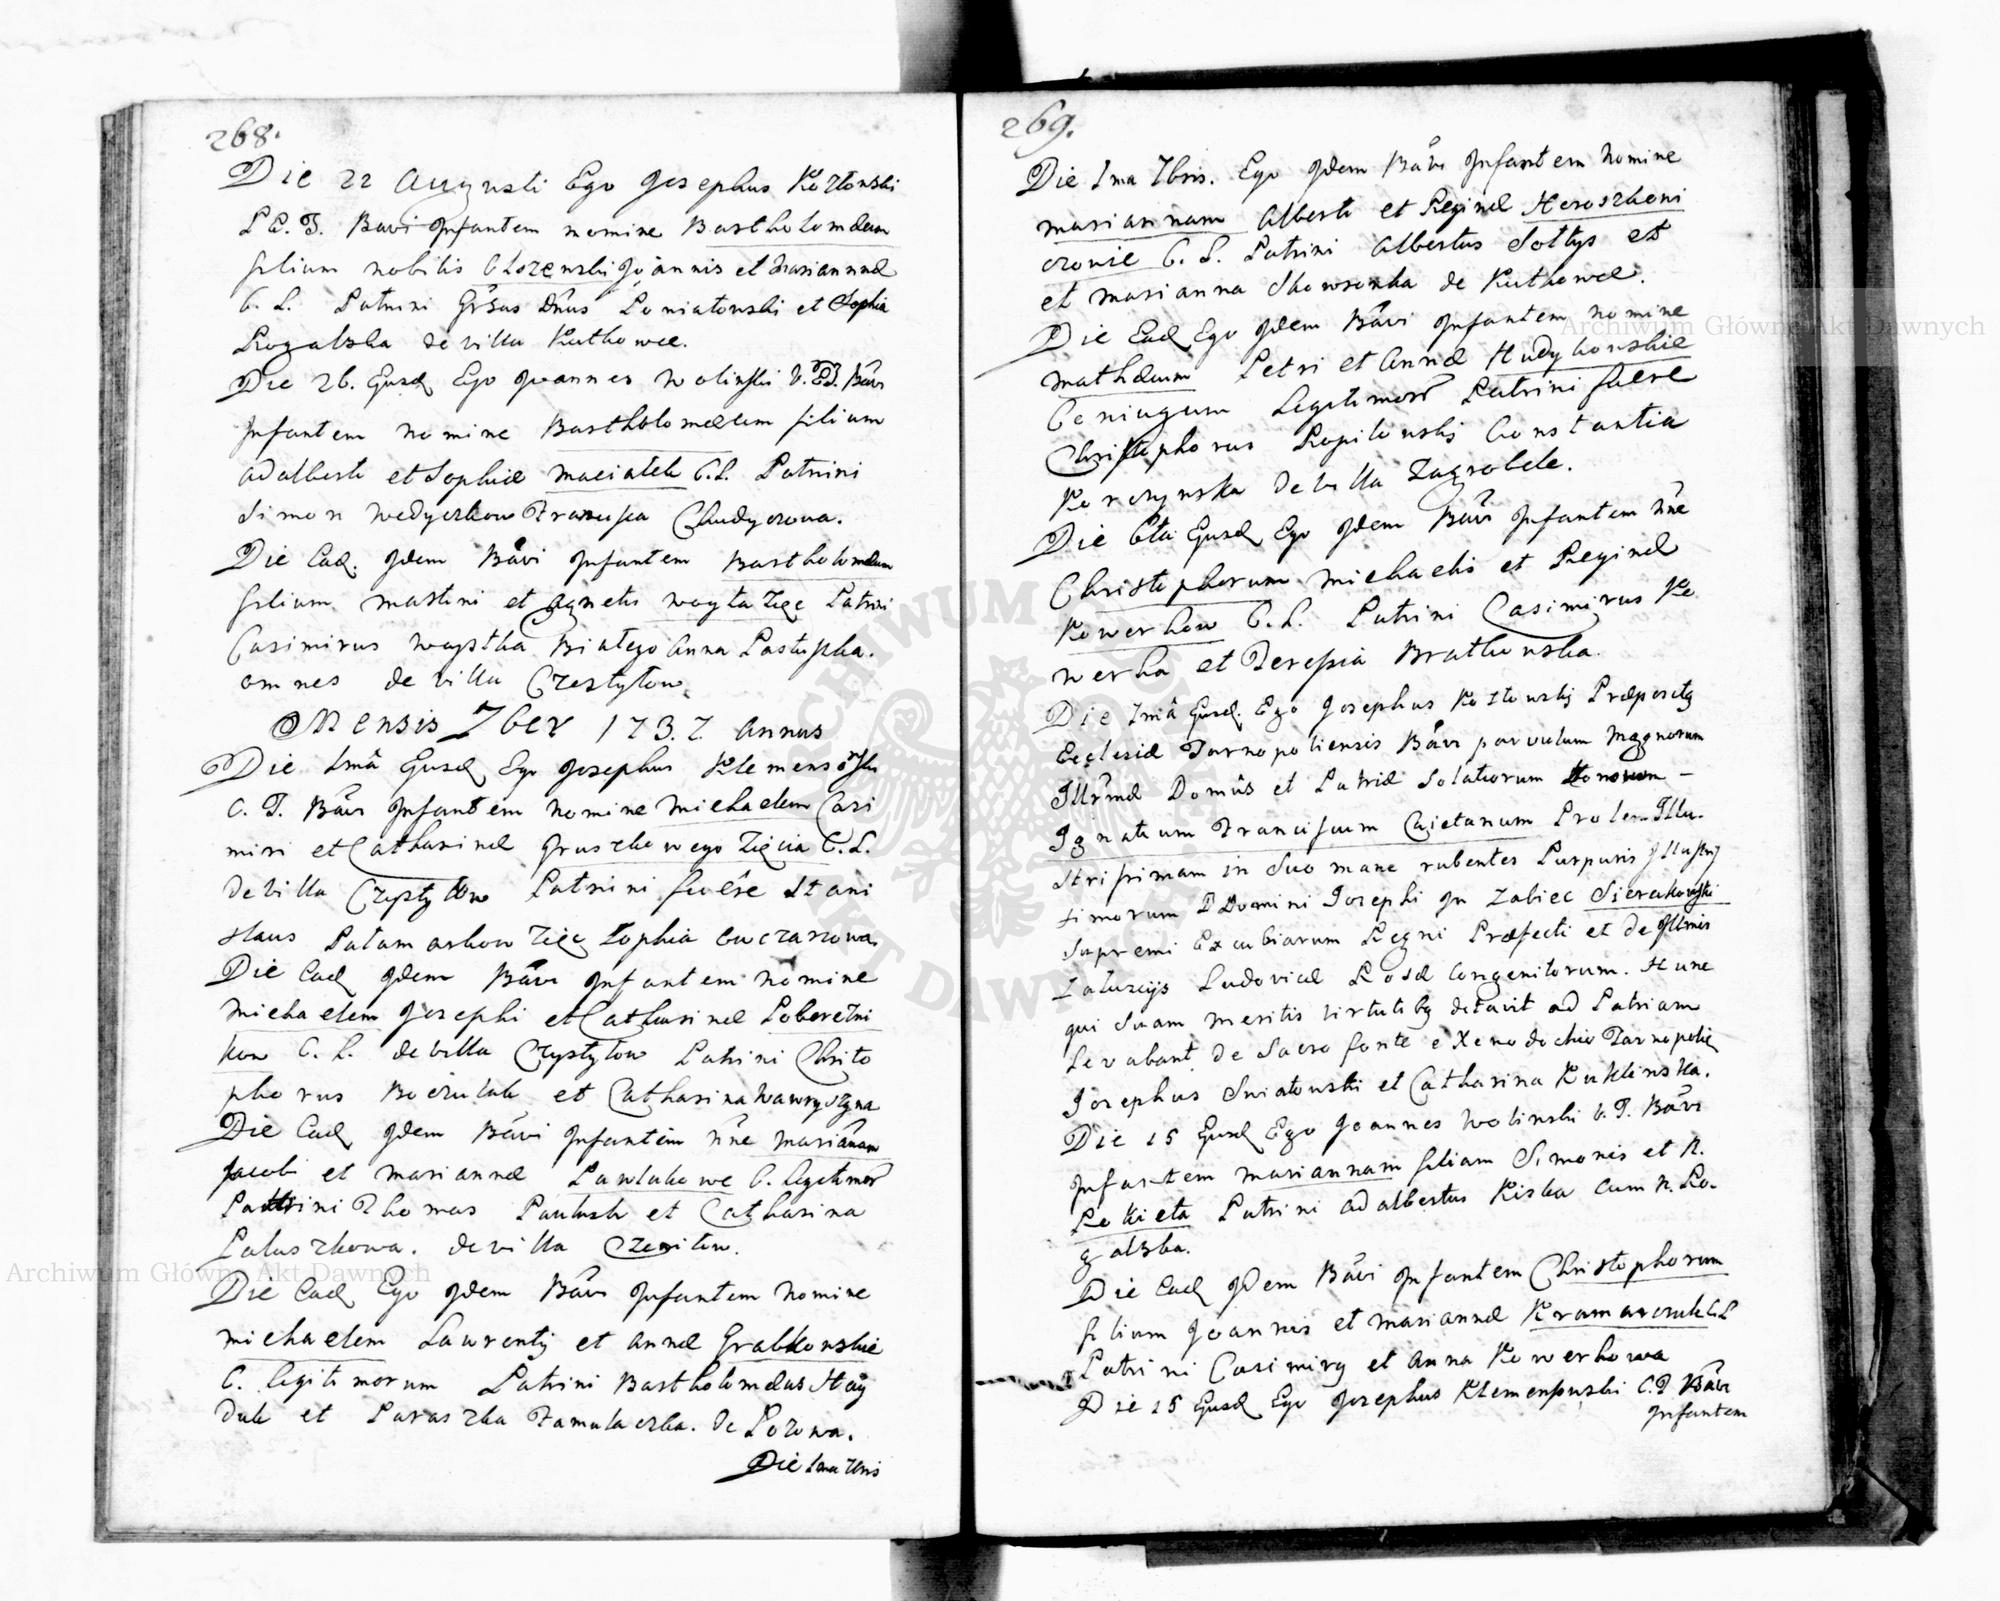 268.
Die 22 Augusti Ego Josephus Kozłowski
P.E.T. Bavi Infantem nomine Bartholomæum
filium nobilis Joannis et Mariannæ
C. L. Patrini Dnus Poniatowski et Sophia
Rogalska de villa Kutkowce.
Die 26. Ejusd Ego Joannes Wolinski V.E.T. Bavi
Infantem nomine Bartholomæum filium
Adalberti et Sophiæ Maciałek C.L. Patrini
Simon Franciscae
Die Ead. Idem Bãvi Infantem Bartholomæum
filium Martini et Agnetis Woyta Zięc Patrini
Casimirus Białego Anna Pastuszka.
omnes de villa Czestyłow
Mensis 7ber 1737 Annus
Die 1mâ Ejusd Ego Josephus Klemensowski
C. T. Bãvi Infantem nomine Michaelem Casi
miri et Catharinæ Gruszkowego Zięcia C.L.
de villa Czystyłow Patrini fuêre Stani
slaus Zięc Zophia Owczarzowa
Die Ead Idem Bãvi Infantem nomine
Michaelem Josephi et Catharinæ Poberezni
kow C. L. de villa Czystyłow Patrini Christo
phorus et Catharina Wawryszyna
Die Ead Idem Bãvi Infantem nñe Mariãnam
Jacobi et Mariannæ Pawlukowe C. legitimor
Patrini Thomas Pauluk et Catharina
Paluszkowa. de villa
Die Ead Ego Idem Bãvi Infantem nomine
Michaelem Laurentij et Annæ Grabkowskie
C. legitimorum Patrini Bartholomæus Hay
duk et Paraszka. de Pozowa.
Die 1ma 7bris
269.
Die 1ma 7bris. Ego Idem Bãvi Infantem nomine
Mariannam Alberti et Reginæ Heroszkoni
C. L. Patrini Albertus Sołtys et
et Marianna Skowronka de Kutkowce.
Die Ead Ego Idem Bãvi Infantem nomine
Mathæum Petri et Annæ Hudykowskie
Coniugum Legitimorr Patrini fuere
Christophorus Ropitowski Constantia
Korczynska De villa Zagrobele.
Die 6ta Ejusd Ego Idem Bãvi Infantem nñe
Christophorum Michaelis et Reginæ
Kowerkow C. L. Patrini Casimirus Ko
werka et Teresia Bratkowska.
Die 7mâ Ejusd. Ego Josephus Kozłowskij Præposity
Ecclesiæ Tarnopoliensis Bãvi parvulum Magnorum
Illrmæ Domûs et Patriæ Solatiorum
Ignatium Franciscum Caietanum Prolem Illu-
stri primam in suo mane rubentes Purpuris Illustris
simorum D Domini Josephi in Zabiec Sierakowski
Supremi Excubiarum Regni Præfecti et de Illmis
Załuscijs Ludovicæ Rosæ Congenitorum. Hunc
qui Suam meritis virtutibq ditavit ad Patriam
Levabant de Sacro fonte e Xenodochio Tarnopolie
Josephus Swiatowski et Catharina Kuklinska.
Die 15 Ejusd Ego Joannes Wolinski V. T. Bãvi
Infantem Mariannam filiam Simonis et N.
Rokieta Patrini Adalbertus Kiska cum N. Ro-
galska.
Die Ead Idem Bãvi Infantem Christophorum
filium Joannis et Mariannæ Kramarczuk C.L
Patrini Casimirq et Anna Kowerkowa
Die 15 Ejusd Ego Josephus Klemensowski C.T Bãvi
Infantem
Archiwum Główne Akt Dawnych
Archiwum Główne Akt Dawnych
ARCHIWUM GŁÓWNE AKT DAWNYCH